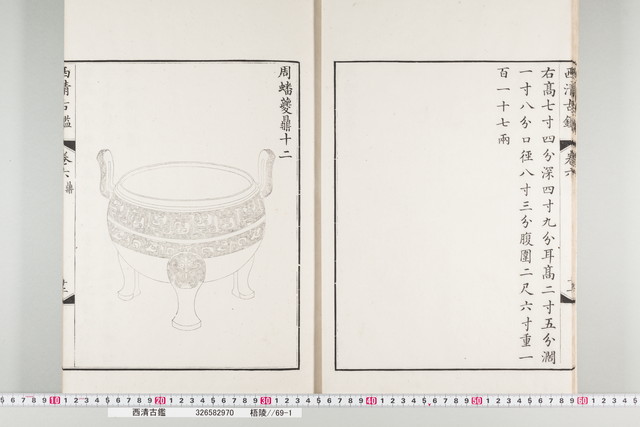 西清古鑑
卷六
右髙七寸四分深四寸九分耳髙二寸五分濶
一寸八分口徑八寸三分腹圍二尺六寸重一
百一十七兩
周蟠夔鼎十二
西清古鑑
卷六 鼎
西清古鑑 326582970 梧陵//69-1